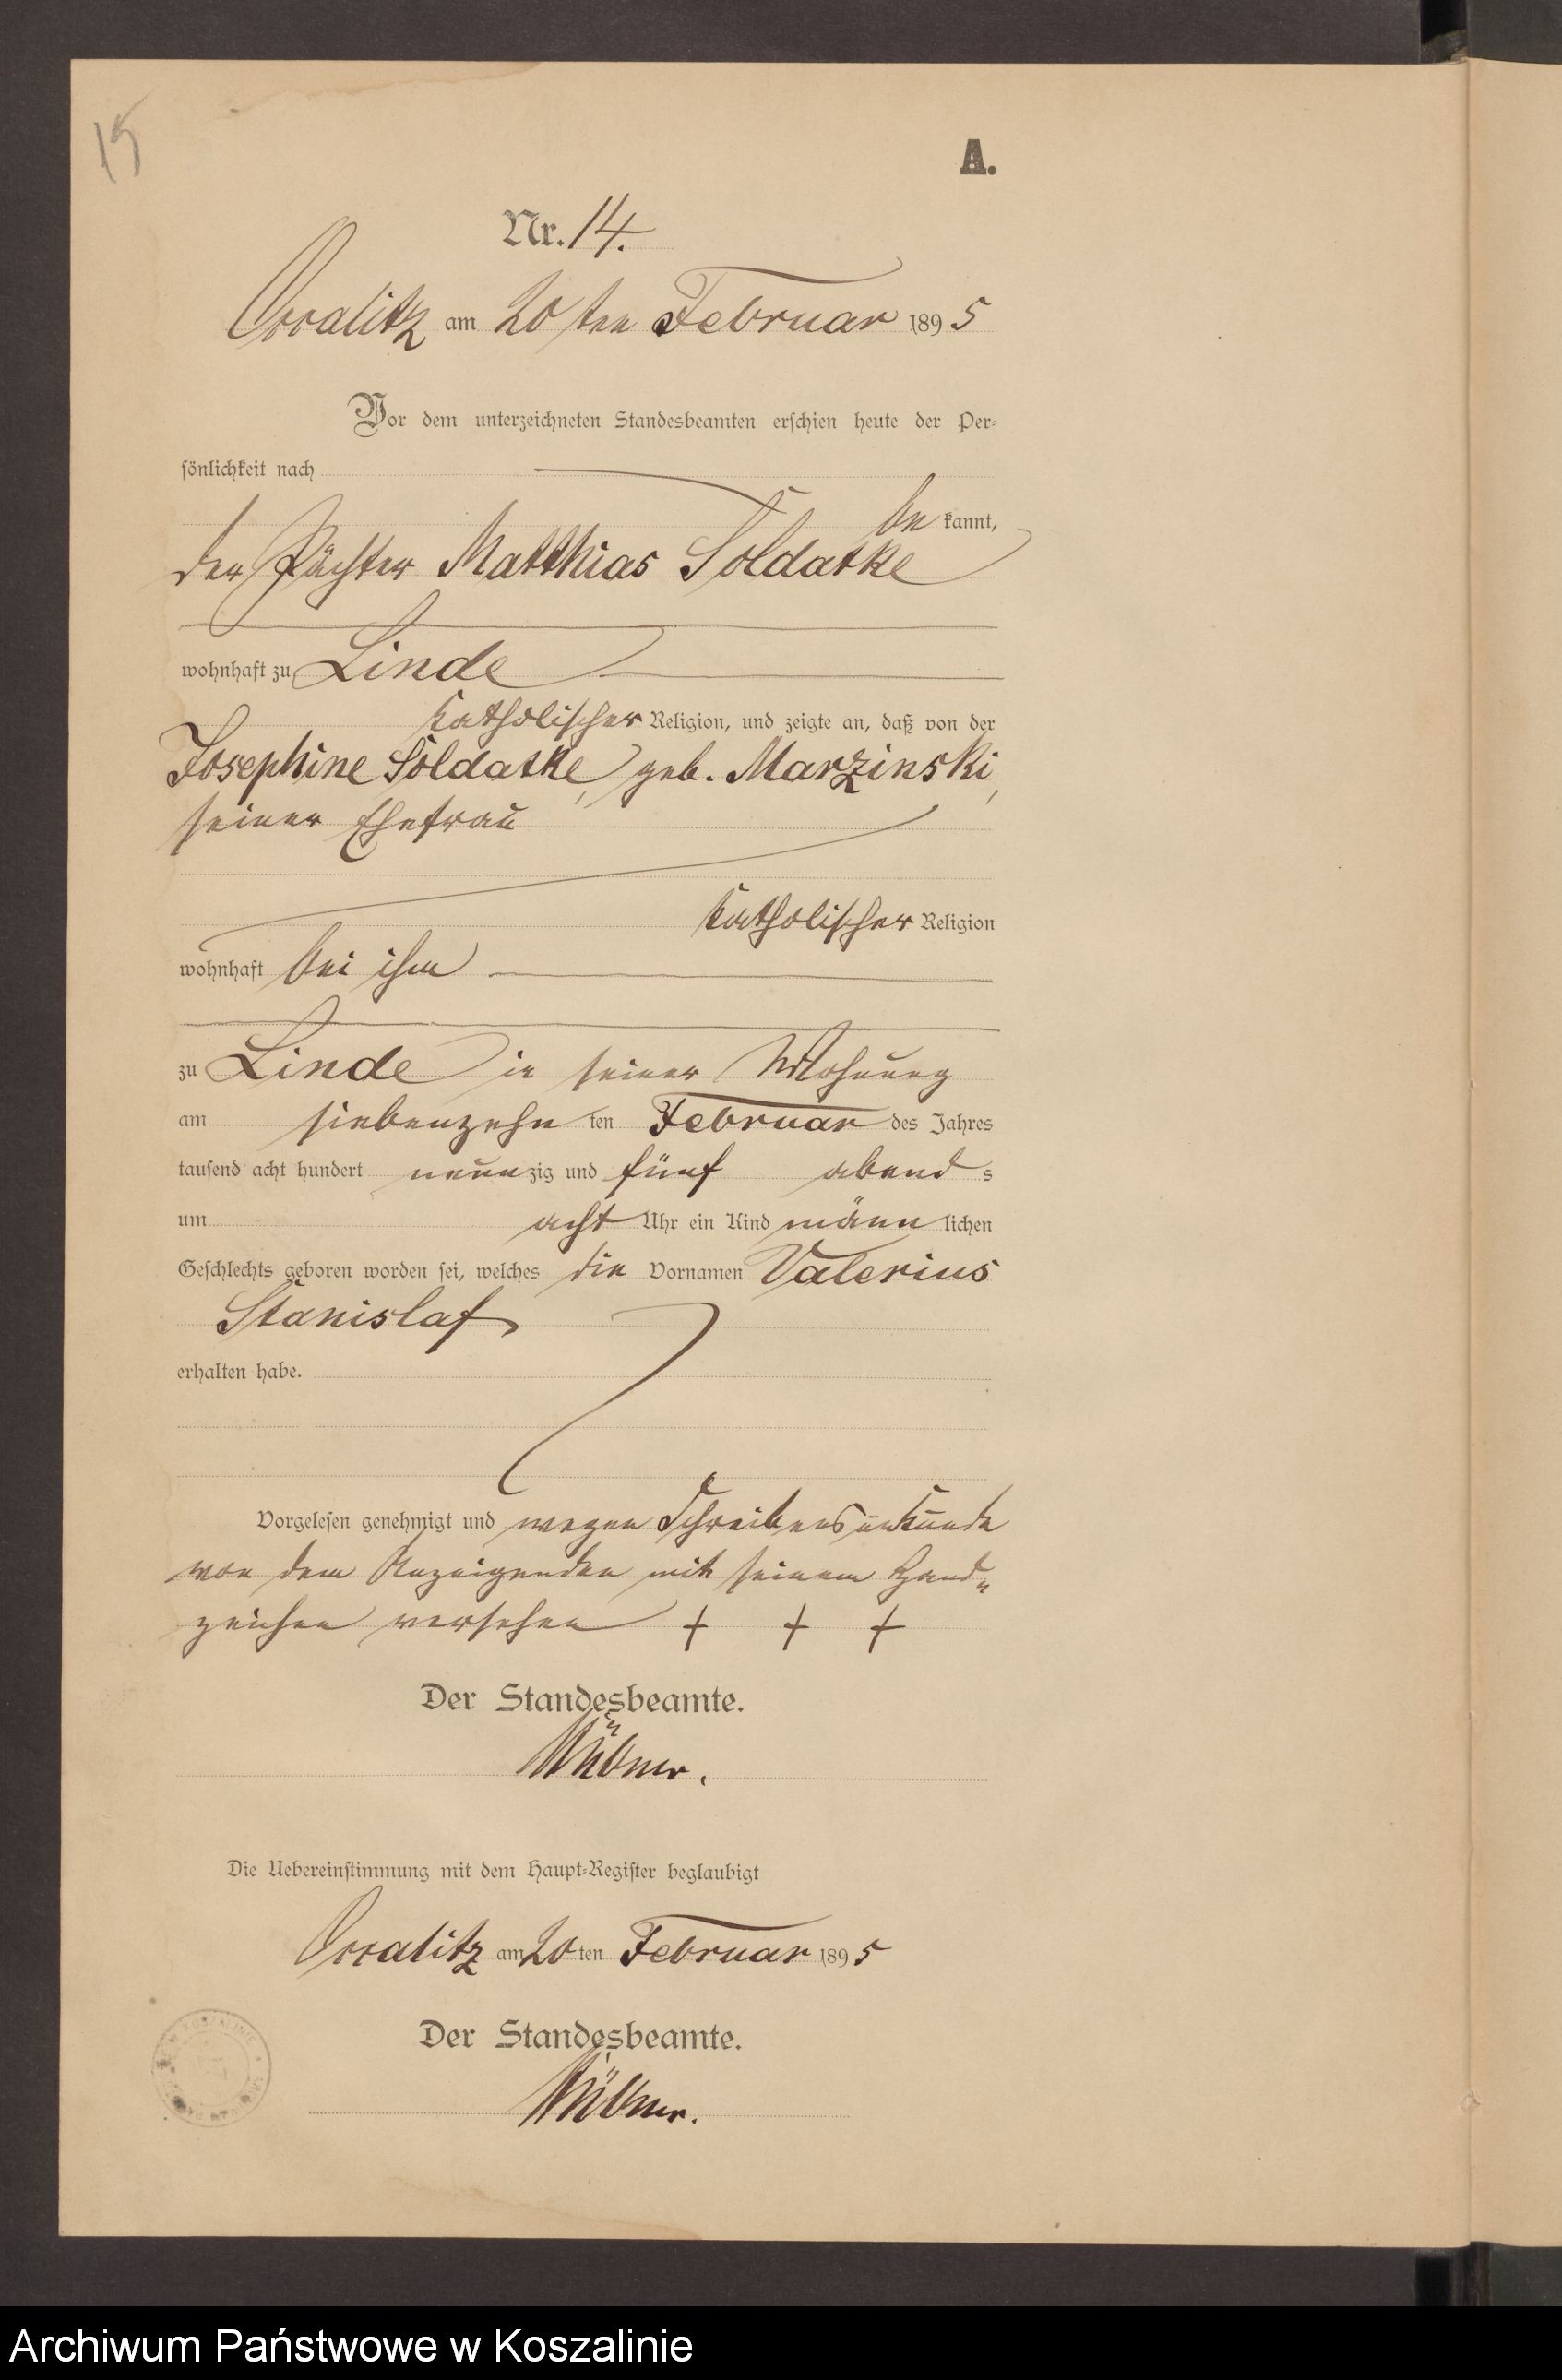 15
A.
Nr. 14.
am 20 ten Februar 1895
Vor dem unterzeichneten Standesbeamten erschien heute der Per-
sönlichkeit nach
be kannt,
der Pächter Matthias Soldatke
wohnhaft zu Linde
katholischer Religion, und zeigte an, daß von der
Josephine Soldatke, geb. Marzinski,
seiner Ehefrau
katholischer Religion
wohnhaft bei ihm
zu Linde in seiner Wohnung
am siebenzehn ten Februar des Jahres
tausend acht hundert neunzig und fünf abend s
um acht Uhr ein Kind männ lichen
Geschlechts geboren worden sei, welches die Vornamen Valerius
Stanislaf
erhalten habe.
Vorgelesen genehmigt und wegen Schreibensunkunde
von dem Anzeigenden mit seinem Hand-
zeichen versehen + + +
Der Standesbeamte.
Die Uebereinstimmung mit dem Haupt-Register beglaubigt
am 20 ten Februar 1895
Der Standesbeamte.
Archiwum Państwowe w Koszalinie